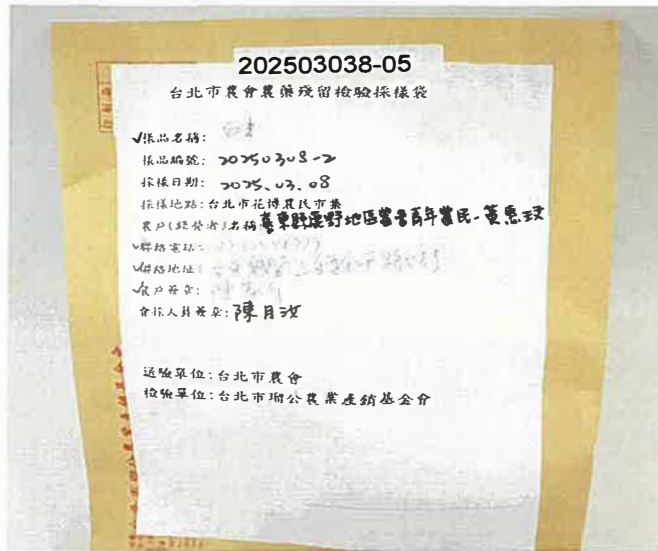 202503038-05
台北市農會農藥殘留檢驗採樣袋
✓樣品名稱:
樣品編號: 20250308-2
採樣日期: 2025.03.08
採樣地點:台北市花博農民市集
農戶(經營者)名稱:臺東縣鹿野地區農會青年農民-黃惠玟
✓聯絡電話:
✓聯絡地址:
✓農戶簽章:
會採人員簽章:陳月汝
送驗單位:台北市農會
檢驗單位:台北市瑠公農業產銷基金會